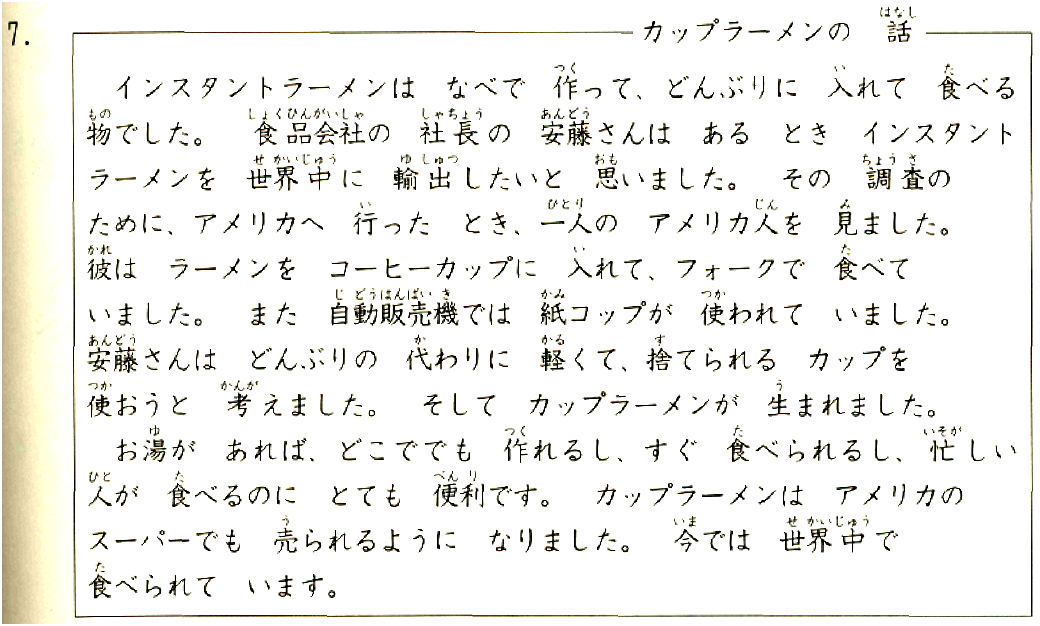 7.
カップラーメンの 話
インスタントラーメンは なべで 作って、どんぶりに 入れて 食べる
物でした。 食品会社の 社長の 安藤さんは ある とき インスタント
ラーメンを 世界中に 輸出したいと 思いました。 その 調査の
ために、アメリカへ 行った とき、一人の アメリカ人を 見ました。
彼は ラーメンを コーヒーカップに 入れて、フォークで 食べて
いました。 また 自動販売機では 紙コップが 使われて いました。
安藤さんは どんぶりの 代わりに 軽くて、捨てられる カップを
使おうと 考えました。 そして カップラーメンが 生まれました。
お湯が あれば、どこででも 作れるし、すぐ 食べられるし、忙しい
人が 食べるのに とても 便利です。 カップラーメンは アメリカの
スーパーでも 売られるように なりました。 今では 世界中で
食べられて います。